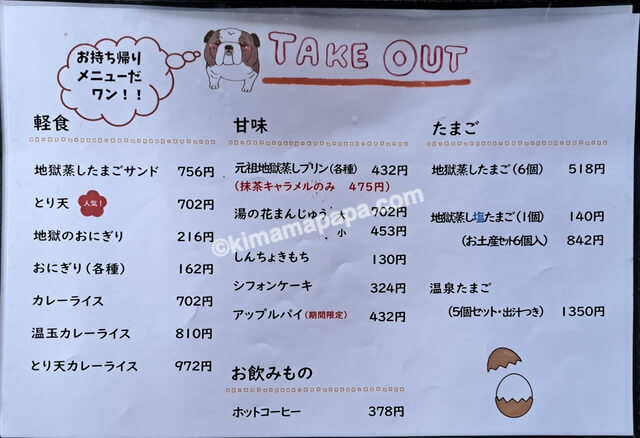 お持ち帰り
メニューだ
ワン！！
TAKE OUT
軽食
地獄蒸したまごサンド 756円
とり天 人気！ 702円
地獄のおにぎり 216円
おにぎり（各種） 162円
カレーライス 702円
温玉カレーライス 810円
とり天カレーライス 972円
甘味
元祖地獄蒸しプリン（各種） 432円
（抹茶キャラメルのみ 475円）
湯の花まんじゅう 大 702円
小 453円
しんちょきもち 130円
シフォンケーキ 324円
アップルパイ（期間限定） 432円
お飲みもの
ホットコーヒー 378円
たまご
地獄蒸したまご（6個） 518円
地獄蒸し塩たまご（1個） 140円
（お土産セット6個入） 842円
温泉たまご
（5個セット・出汁つき） 1350円
©kimamapapa.com